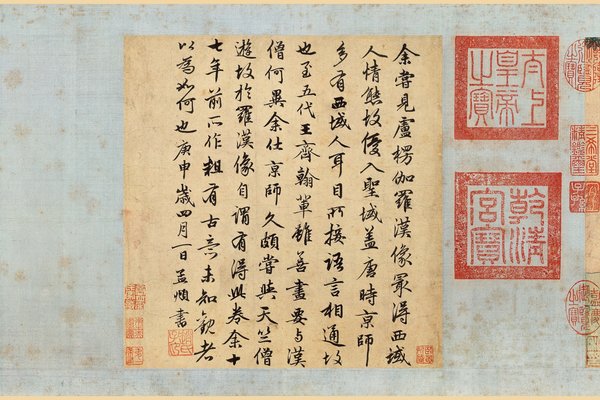 三希堂精鑑璽
宜子孫
太上皇帝之寶
乾清宮寶
余嘗見盧楞伽羅漢像冣得西域
人情態故優入聖域蓋唐時京師
多有西域人耳目所接語言相通故
也至五代王齊翰輩雖善畫要与漢
僧何異余仕京師久頗嘗與天竺僧
遊故於羅漢像自謂有得此卷余十
七年前所作粗有古意未知觀者
以為如何也庚申歲四月一日孟頫書